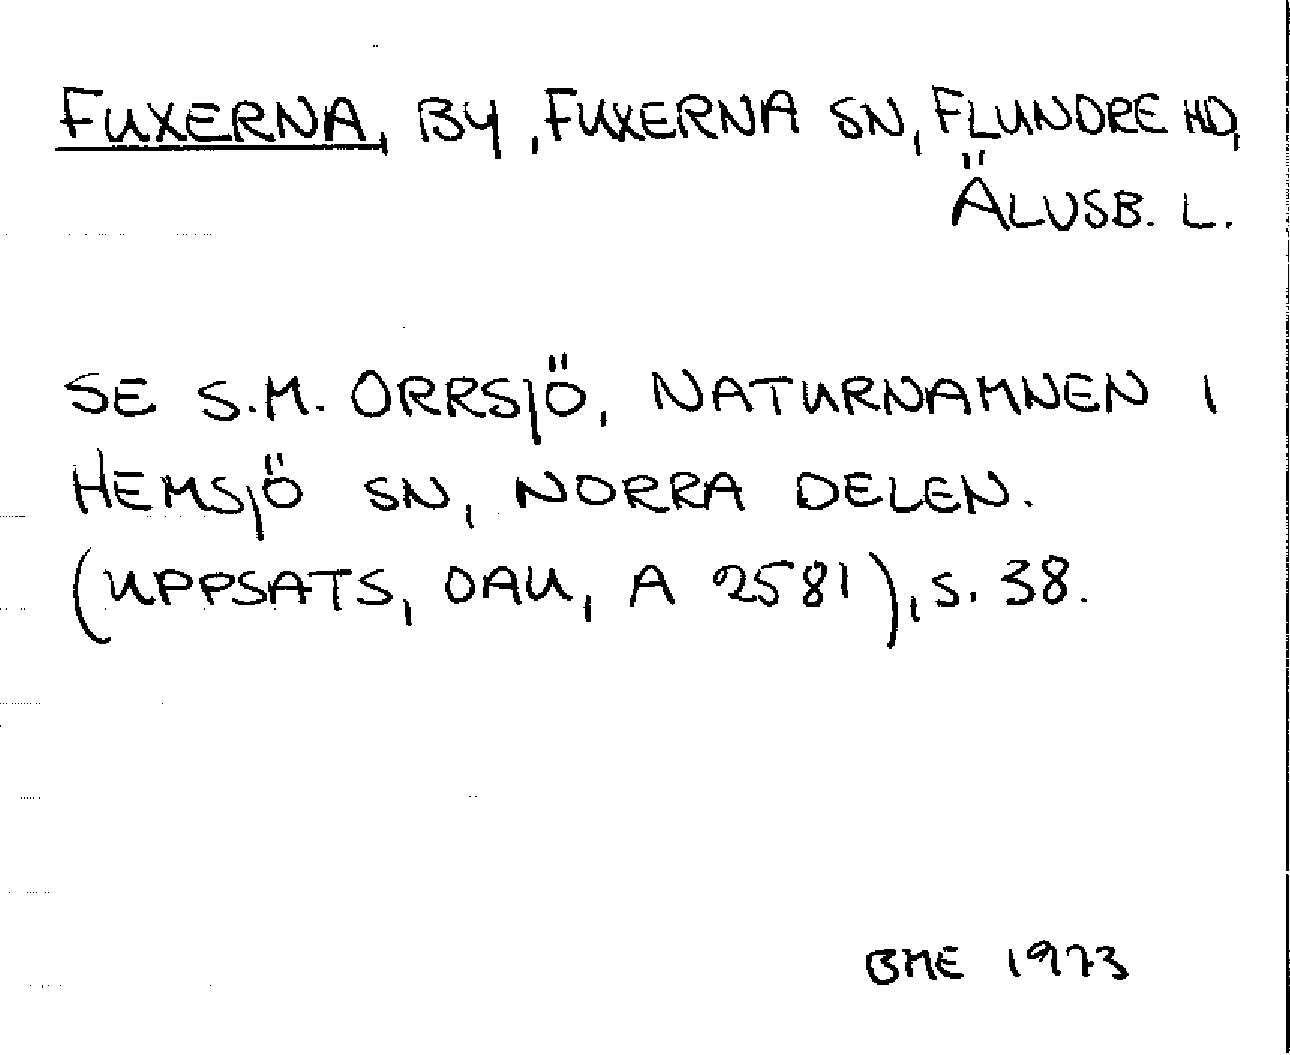 FUXERNA, BY, FUXERNA SN, FLUNDRE HD,
ÄLVSB. L.
SE S.M. ORRSJÖ, NATURNAMNEN I
HEMSJÖ SN, NORRA DELEN.
(UPPSATS, OAU, A 2581), S. 38.
BME 1973